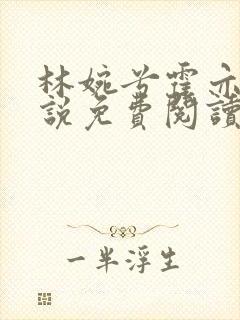 林婉兮霍亦
說免費閱讀
一半浮生